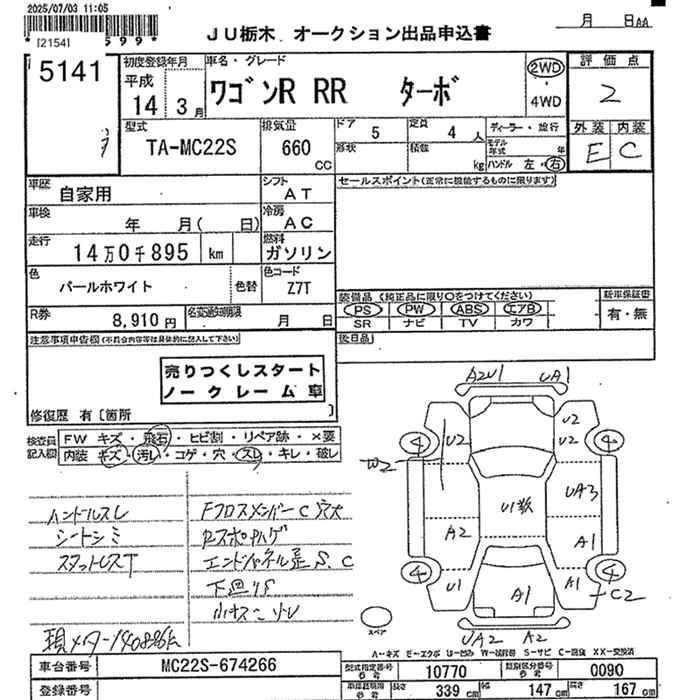 2025/07/03 11:05
* I2154I 599*
JU栃木 オークション出品申込書
月 日AA
5141
初度登録年月
平成
14 3月
車名・グレード
ワゴンR RR ターボ
2WD
4WD
評価点
2
外装 内装
E C
型式
TA-MC22S
排気量
660 CC
ドア 5
定員 4人
ディーラー・並行
形状
積載 kg
モデル年式 年
ハンドル 左・右
車歴
自家用
シフト
AT
セールスポイント(正常に機能するものに限ります)
車検
年 月( 日)
冷房
AC
走行
14万0千895 km
燃料
ガソリン
色
パールホワイト
色替
色コード
Z7T
装備品(純正品に限り○をつけてください)
新車保証書
PS PW ABS エアB
有・無
SR ナビ TV カワ
R券
8,910円
名変通知期限
月 日
後日品
注意事項申告欄(不具合内容等は具体的に記入して下さい)
売りつくしスタート
ノークレーム車
修復歴 有〔箇所 〕
検査員記入欄
FW キズ・飛石・ヒビ割・リペア跡・×要
内装 キズ・汚れ・コゲ・穴・スレ・キレ・破レ
ハンドルスレ
シートシミ
スタットレスT
FクロスメンバーC穴大
エンドパネル是S、C
下回りS
現メーター140896k
A2U1 UA1
U2
U2
U2
W2
U1数
UA3
A2
A1
U1
A1
A1
C2
UA2 A2
4
4
4
4
スペア
A-キズ E-エクボ U-凹み W-補修跡 S-サビ C-腐食 XX-交換済
車台番号
MC22S-674266
型式指定番号
10770
類別区分番号
0090
登録番号
長さ
339 cm
幅
147 cm
高さ
167 cm